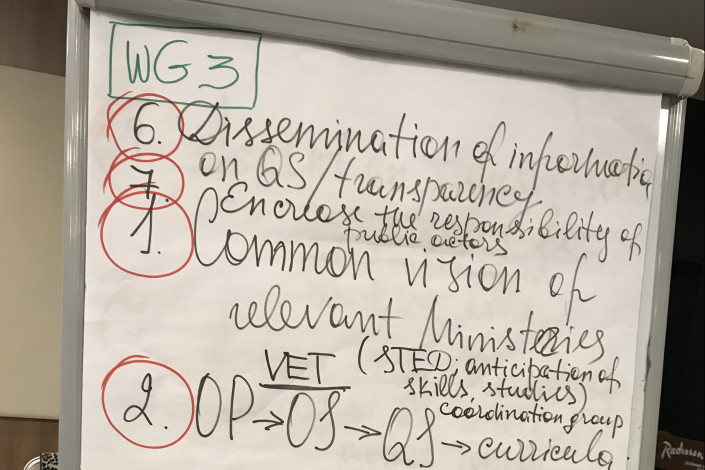 WG 3
6. Dissemination of informatio
on QS/transparency
7. Encrease the responsibility of
public actors
1. Common vision of
relevant Ministries
VET (STED; anticipation of
skills, studies)
coordination group
2. OP → OS → QS → curricula.
Radisson